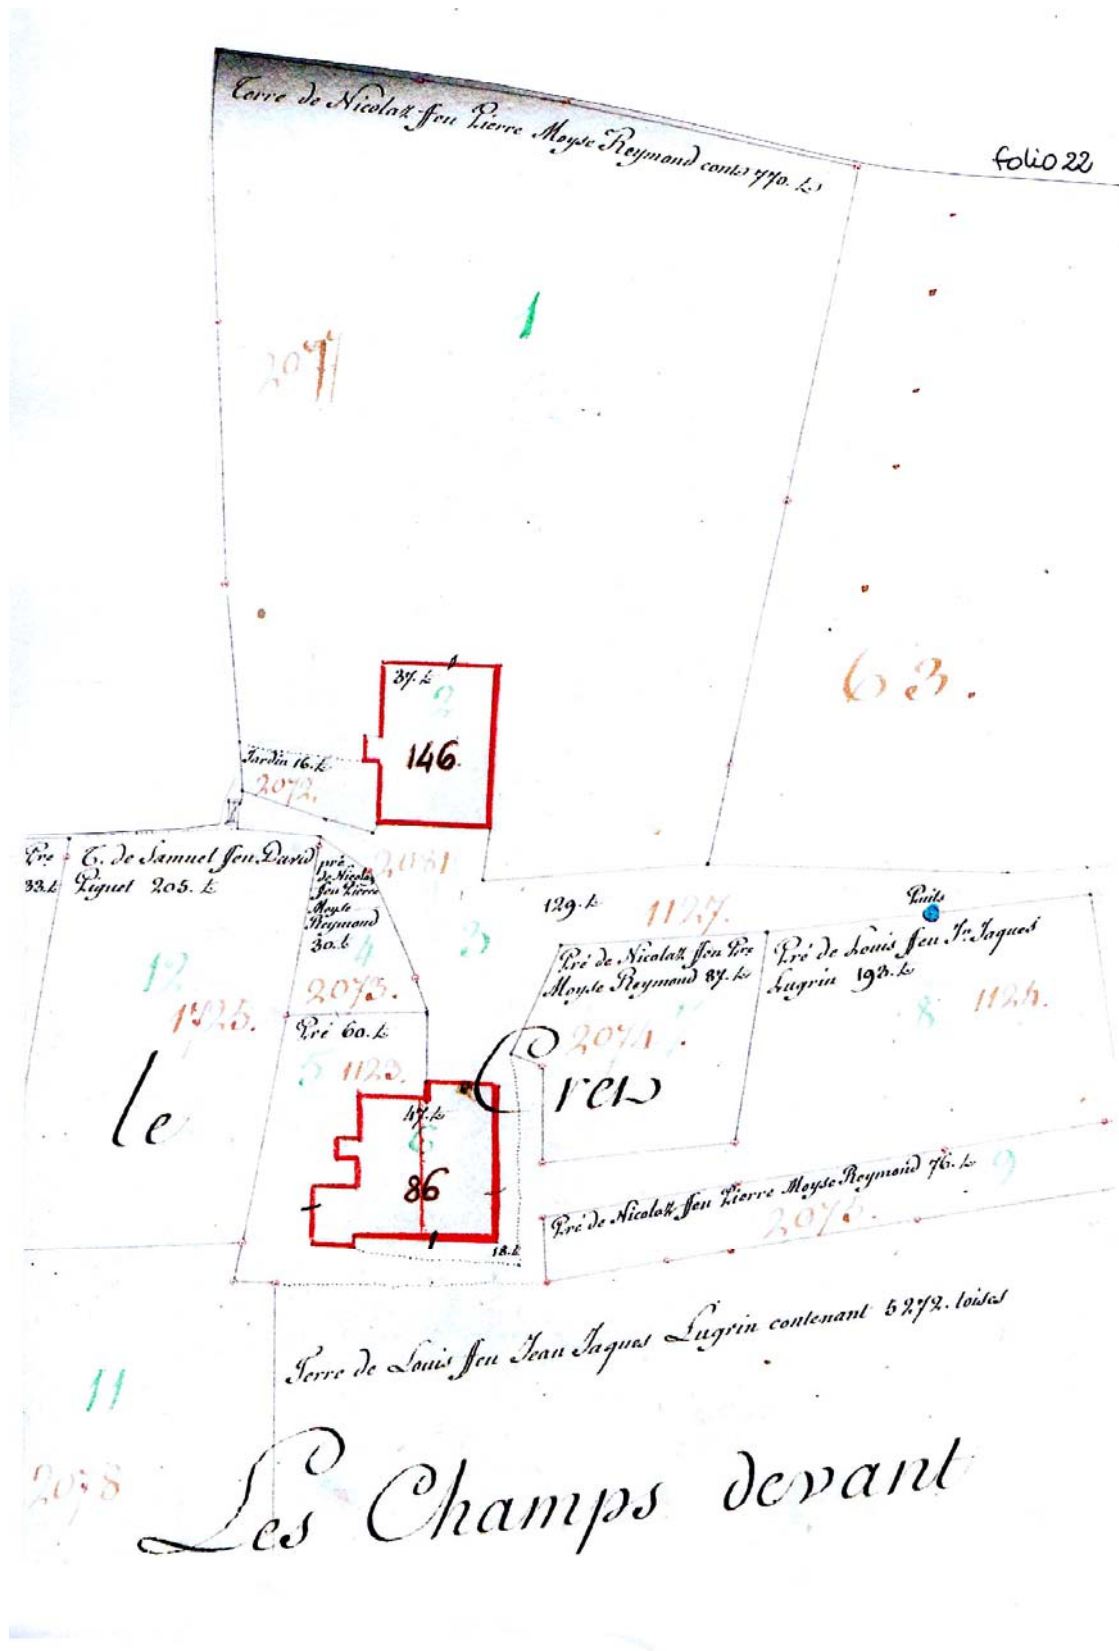 folio 22
Terre de Nicolaz ffeu Pierre Moyse Reymond cont.s 770. t.s
1
2071
63.
37. t.
2
146.
Jardin 16. t.
2072.
2031
Pré
33. t.
T. de Samuel ffeu David
Piguet 205. t.
12
1725.
pré
de Nicolaz
ffeu Pierre
Moyse
Reymond
30. t.
4
2073.
3
129. t.
1127.
Puits
Pré de Nicolaz ffeu Pre
Moyse Reymond 87. t.
2074.
7
Pré de Louis ffeu Jn. Jaques
Lugrin 193. t.
8
1124.
Pré 60. t.
5
1123.
le Crés
47. t.
6
86
18. t.
Pré de Nicolaz ffeu Pierre Moyse Reymond 76. t.
9
2075.
Terre de Louis ffeu Jean Jaques Lugrin contenant 5272. toises
11
2078
Les Champs devant